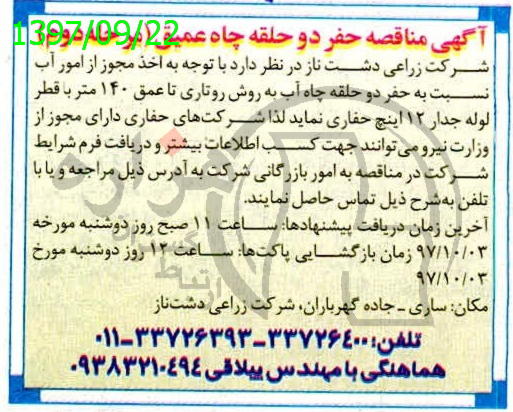 1397/09/22
آگهی مناقصه حفر دو حلقه چاه عمیق (مرحله دوم)
شرکت زراعی دشت ناز در نظر دارد با توجه به اخذ مجوز از امور آب
نسبت به حفر دو حلقه چاه آب به روش روتاری تا عمق ۱۴۰ متر با قطر
لوله جدار ۱۲ اینچ حفاری نماید لذا شرکت‌های حفاری دارای مجوز از
وزارت نیرو می‌توانند جهت کسب اطلاعات بیشتر و دریافت فرم شرایط
شرکت در مناقصه به امور بازرگانی شرکت به آدرس ذیل مراجعه و یا با
تلفن به‌شرح ذیل تماس حاصل نمایند.
آخرین زمان دریافت پیشنهادها: ساعت ۱۱ صبح روز دوشنبه مورخه
۹۷/۱۰/۰۳ زمان بازگشایی پاکت‌ها: ساعت ۱۲ روز دوشنبه مورخ
۹۷/۱۰/۰۳
مکان: ساری - جاده گهرباران، شرکت زراعی دشت‌ناز
تلفن: ۳۳۷۲۶۴۰۰-۳۳۷۲۶۳۹۳-۰۱۱
هماهنگی با مهندس ییلاقی ۰۹۳۸۳۲۱۰۴۹۴
هزاره
ارتباط